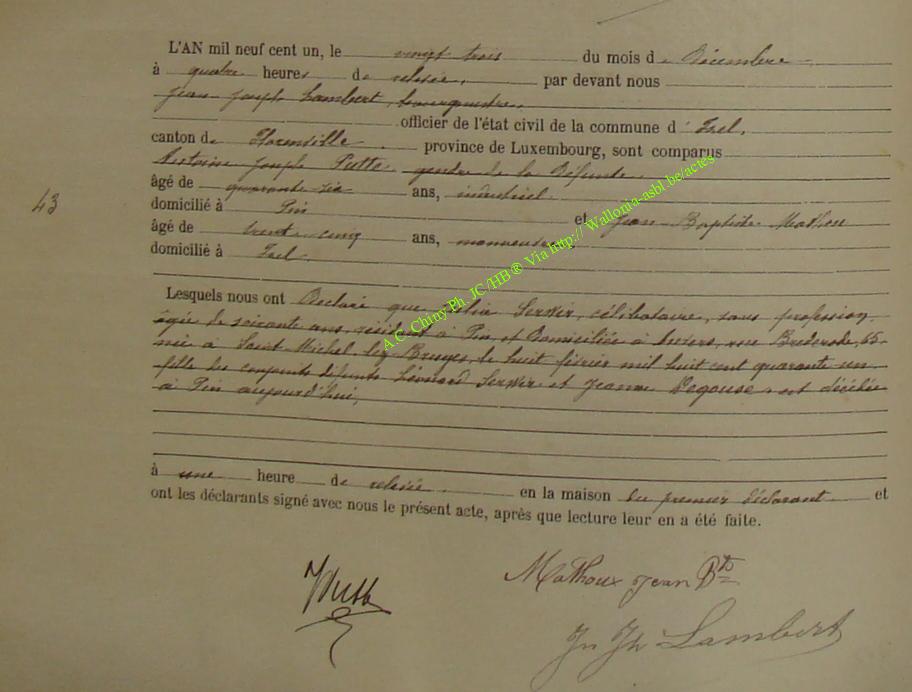 L'AN mil neuf cent un, le vingt trois du mois de Décembre
à quatre heures de relevée, par devant nous
Jean Joseph Lambert, bourgmestre,
officier de l'état civil de la commune d'Izel,
canton de Florenville province de Luxembourg, sont comparus
Joseph Putte gendre de la Défunte
âgé de quarante six ans, industriel
domicilié à Pin et Jean Baptiste Mathou
âgé de trente cinq ans, manoeuvre,
domicilié à Izel
43
Lesquels nous ont Déclaré que Servir, célibataire, sans profession,
âgée de soixante ans, résidant à Pin, et Domiciliée à Anvers, rue Bréderode, 65
née à Saint Michel lez Bruges, le huit février mil huit cent quarante un
fille des conjoints défunts Léonard Servir et Jeanne Degouse est décédée
à Pin aujourd'hui,
à une heure de relevée en la maison du premier déclarant et
ont les déclarants signé avec nous le présent acte, après que lecture leur en a été faite.
Mathoux Jean Bte
Jn Jh Lambert
A.C. Chiny Ph. JC/HB ® Via http:// Wallonia-asbl.be/actes